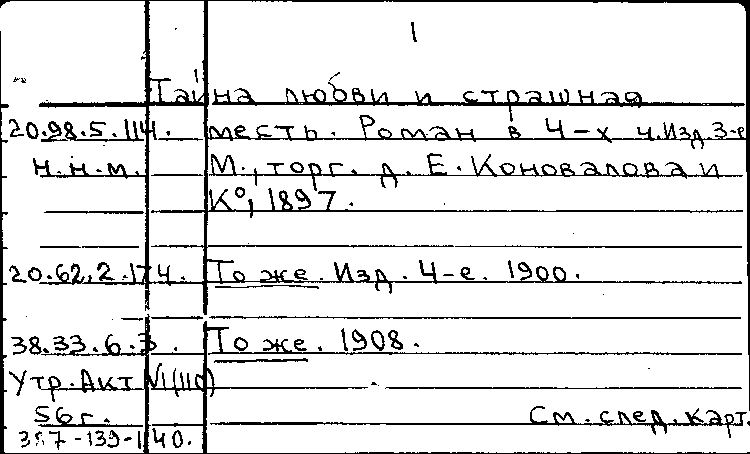 1
Тайна любви и страшная
20.98.5.114. месть. Роман в 4-х ч. Изд. 3-е
Н.н.м. М., торг. д. Е. Коновалова и
К°, 1897.
20.62.2.174. То же. Изд. 4-е. 1900.
38.33.6.3. То же. 1908.
Утр. Акт
56 г. См. след. карт.